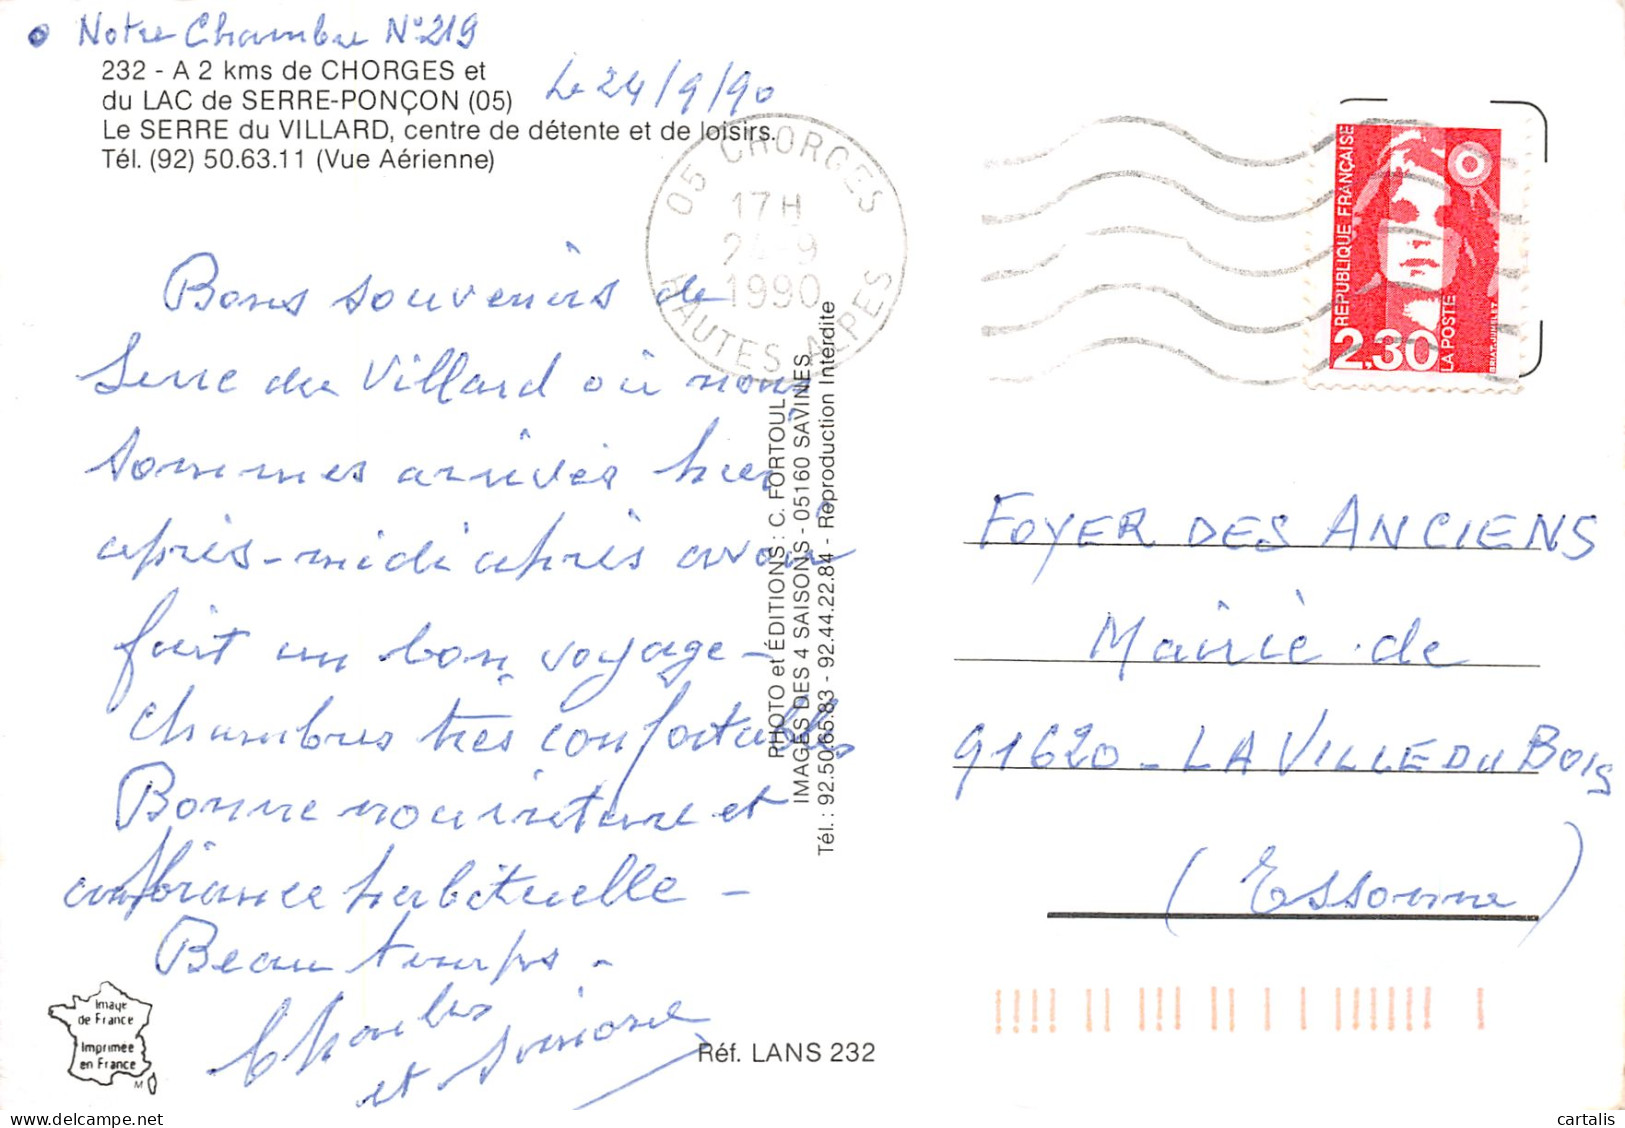 Notre Chambre N°219
232 - A 2 kms de CHORGES et
du LAC de SERRE-PONÇON (05)
Le 24/9/90
Le SERRE du VILLARD, centre de détente et de loisirs.
Tél. (92) 50.63.11 (Vue Aérienne)
05 CHORGES
17 H
24-9
1990
HAUTES ALPES
Bons souvenirs de
Serre du Villard où nous
sommes arrivés hier
après-midi après avoir
fait un bon voyage-
chambres très confortables
Bonne nourriture et
ambiance habituelle -
Beau temps -
Charles
et Simone
PHOTO et ÉDITIONS : C. FORTOUL
IMAGES DES 4 SAISONS - 05160 SAVINES
Tél. : 92.50.65.83 - 92.44.22.84 - Reproduction Interdite
Image
de France
Imprimée
en France
M
Réf. LANS 232
RÉPUBLIQUE FRANÇAISE
2,30
LA POSTE
BRIAT-JUMELET
FOYER DES ANCIENS
Mairie de
91620 - LA VILLE DU BOIS
(Essonne)
cartalis